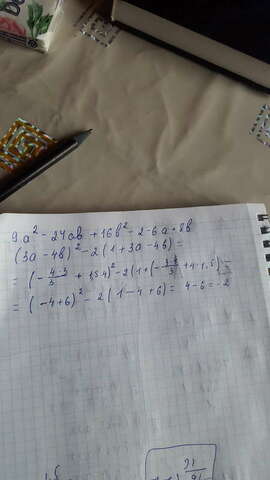 9a² - 24ab + 16b² - 2 - 6a + 8b
(3a - 4b)² - 2(1 + 3a - 4b) =
= (-4·3/3 + 1,5·4)² - 2(1 + (-3·4/3 + 4·1,5) =
= (-4+6)² - 2(1 - 4 + 6) = 4 - 6 = -2